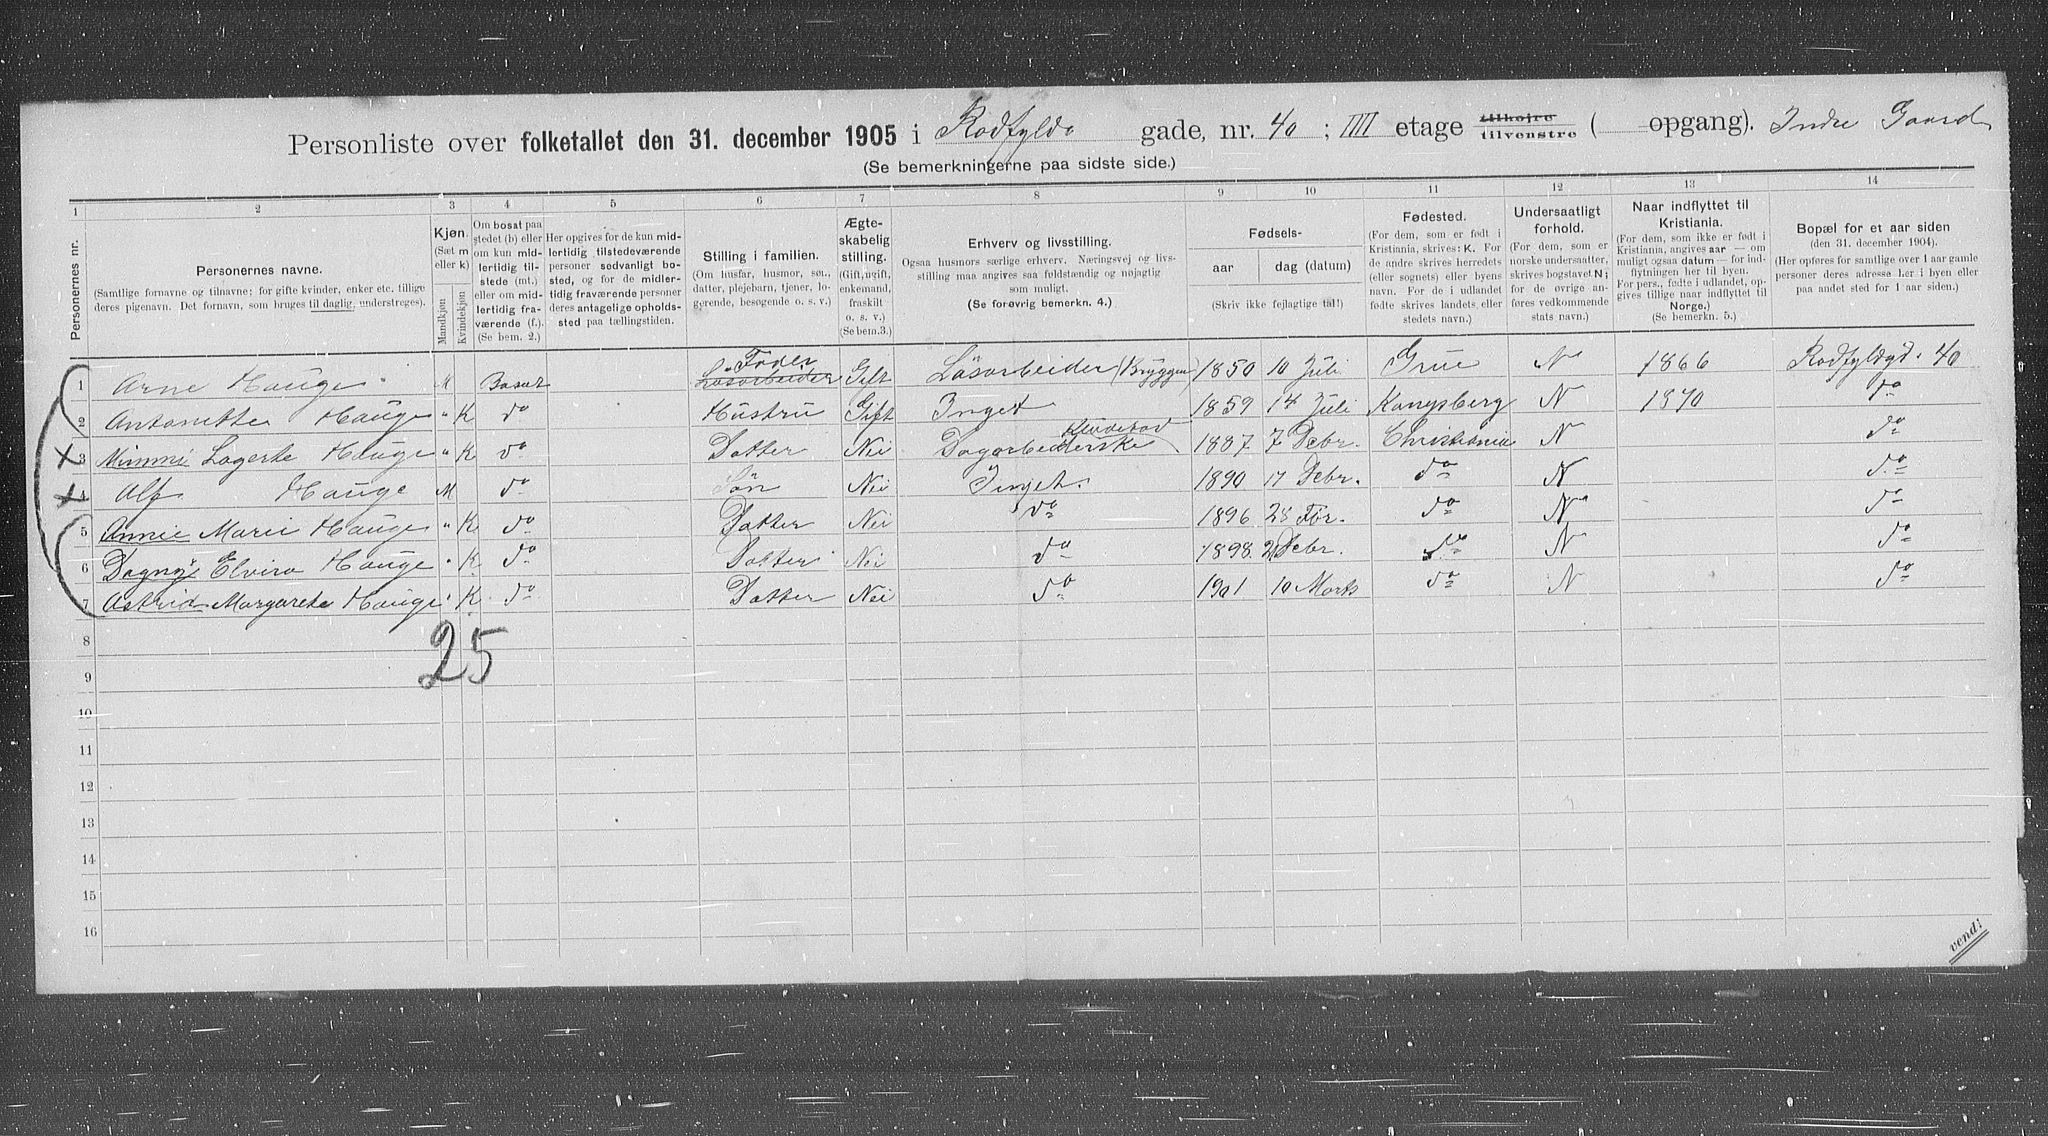 Personliste over folketallet den 31. december 1905 i Rodfylds gade, nr. 40 ; IIII etage tilhøjre tilvenstre ( opgang). Indre Gaard
(Se bemerkningerne paa sidste side.)
1 2 3 4 5 6 7 8 9 10 11 12 13 14
Personernes nr.
Personernes navne.
(Samtlige fornavne og tilnavne; for gifte kvinder, enker etc. tillige
deres pigenavn. Det fornavn, som bruges til daglig, understreges).
Kjøn.
(Sæt m
eller k)
Mandkjøn
Kvindekjøn
Om bosat paa
stedet (b) eller
om kun mid-
lertidig til-
stede (mt.)
eller om mid-
lertidig fra-
værende (f.).
(Se bem. 2.)
Her opgives for de kun mid-
lertidig tilstedeværende
personer sedvanlig bo-
sted, og for de midler-
tidig fraværende personer
deres antagelige opholds-
sted paa tællingstiden.
Stilling i familien.
(Om husfar, husmor, søn,
datter, plejebarn, tjener, lo-
gerende, besøgende o. s. v.)
Ægte-
skabelig
stilling.
(Gift, ugift,
enkemand,
fraskilt
o. s. v.)
(Se bem.3.)
Erhverv og livsstilling.
Ogsaa husmors særlige erhverv. Næringsvej og livs-
stilling maa angives saa fuldstændig og nøjagtig
som muligt.
(Se forøvrig bemerkn. 4.)
Fødsels-
aar
dag (datum)
(Skriv ikke fejlagtige tal!)
Fødested.
(For dem, som er født i
Kristiania, skrives: K. For
de andre skrives herredets
(eller sognets) eller byens
navn. For de i udlandet
fødte skrives landets eller
stedets navn.)
Undersaatligt
forhold.
(For dem, som er
norske undersaatter,
skrives bogstavet N;
for de øvrige an-
føres vedkommende
stats navn.)
Naar indflyttet til
Kristiania.
(For dem, som ikke er født i
Kristiania, angives aar — om
muligt ogsaa datum — for ind-
flytningen her til byen.
For pers., fødte i udlandet, op-
gives tillige naar indflyttet til
Norge.)
(Se bemerkn. 5.)
Bopæl for et aar siden
(den 31. december 1904).
(Her opføres for samtlige over 1 aar gamle
personer deres adresse her i byen eller
paa andet sted for 1 aar siden.)
1 Arne Hauge M Bosat Løsarbeider Fader Gift Løsarbeider (Bryggen) 1850 10 Juli Grue N 1866 Rodfyldgd. 40
2 Antonette Hauge " K do Hustru Gift Inget 1859 14 Juli Kongsberg N 1870 do
3 Mimmi Lagerte Hauge " K do Datter Nei Dagarbeiderske Kludebod 1887 7 Febr. Christiania N do
4 Alf Hauge M do Søn Nei Inget. 1890 17 Febr. do N do
5 Annie Marei Hauge " K do Datter Nei do 1896 28 do N do
6 Dagny Elvira Hauge " K do Datter Nei do 1898 2 Febr. do N do
7 Astrid Margarete Hauge " K do Datter Nei do 1901 10 Marts do N do
25
8
9
10
11
12
13
14
15
16
vend!